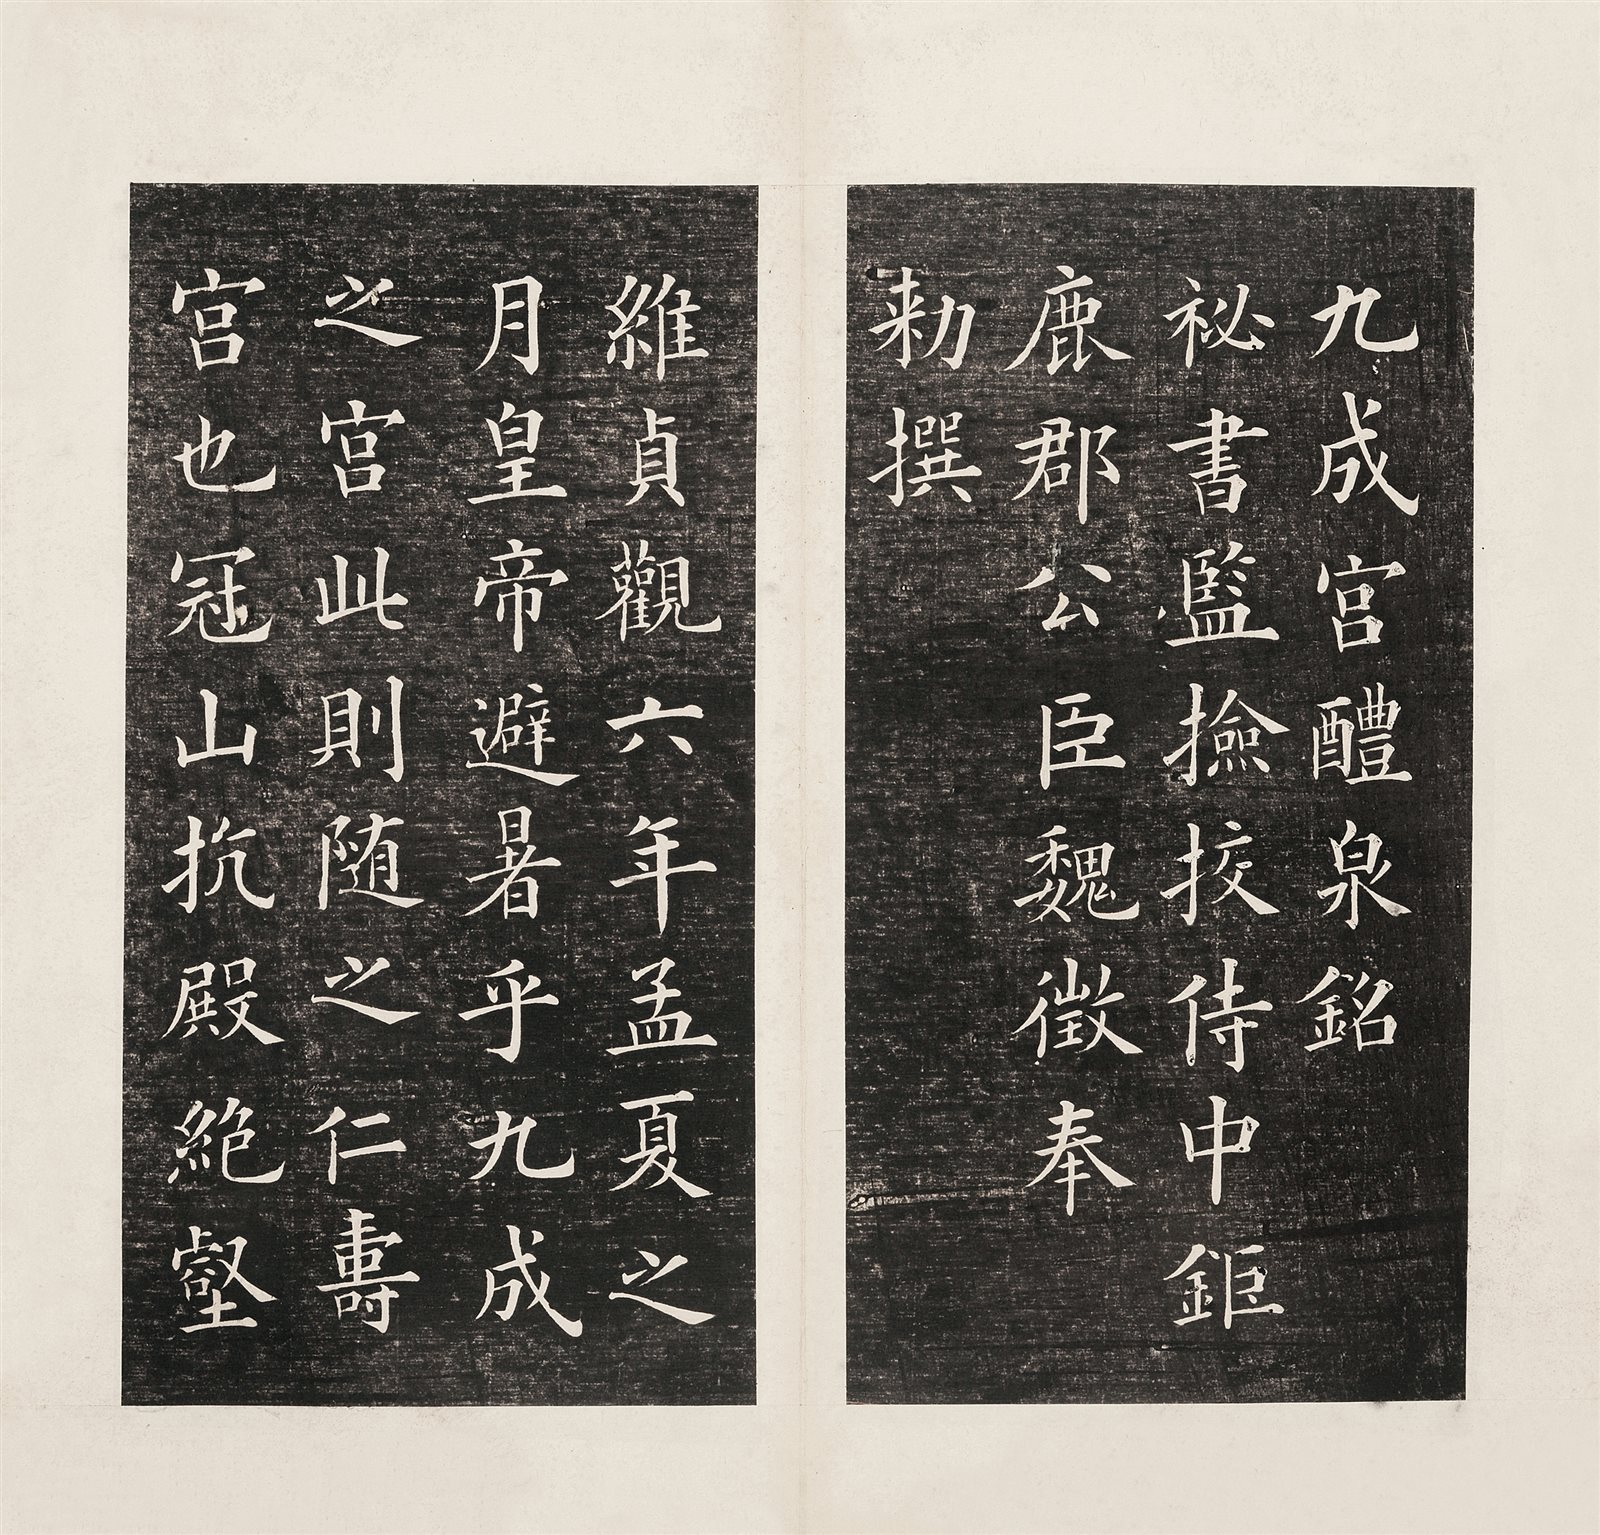 九成宫醴泉銘
祕書監撿挍侍中鉅
鹿郡公臣魏徵奉
勅撰
維貞觀六年孟夏之
月皇帝避暑乎九成
之宫此則随之仁壽
宫也冠山抗殿絶壑